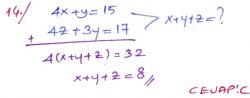 14./ 4x+y=15
x+y+z=?
+ 4z+3y=17
4(x+y+z)=32
x+y+z=8
CEVAP:C